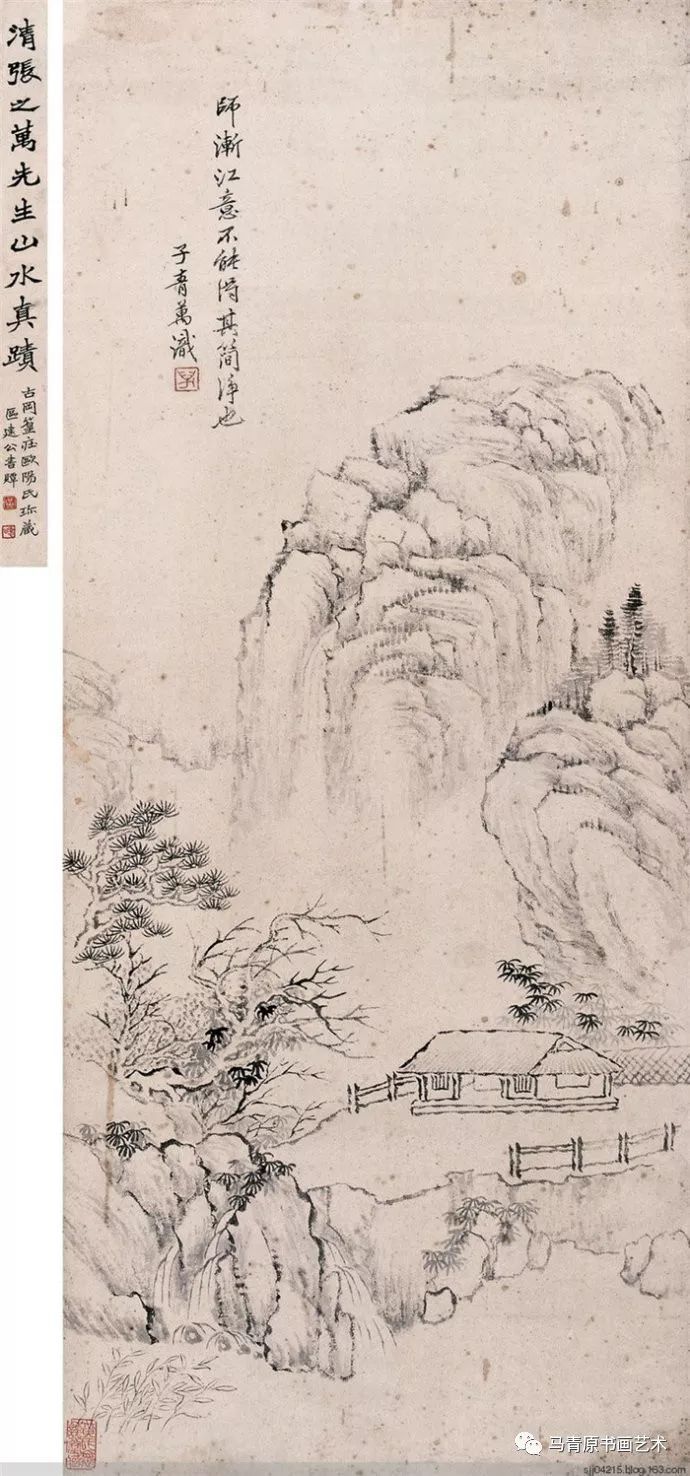 清張之萬先生山水真蹟
古岡篁莊歐陽氏珍藏
區建公書贉
師漸江意不能得其簡淨也
子青萬識
马青原书画艺术
sjj04215.blog.163.com